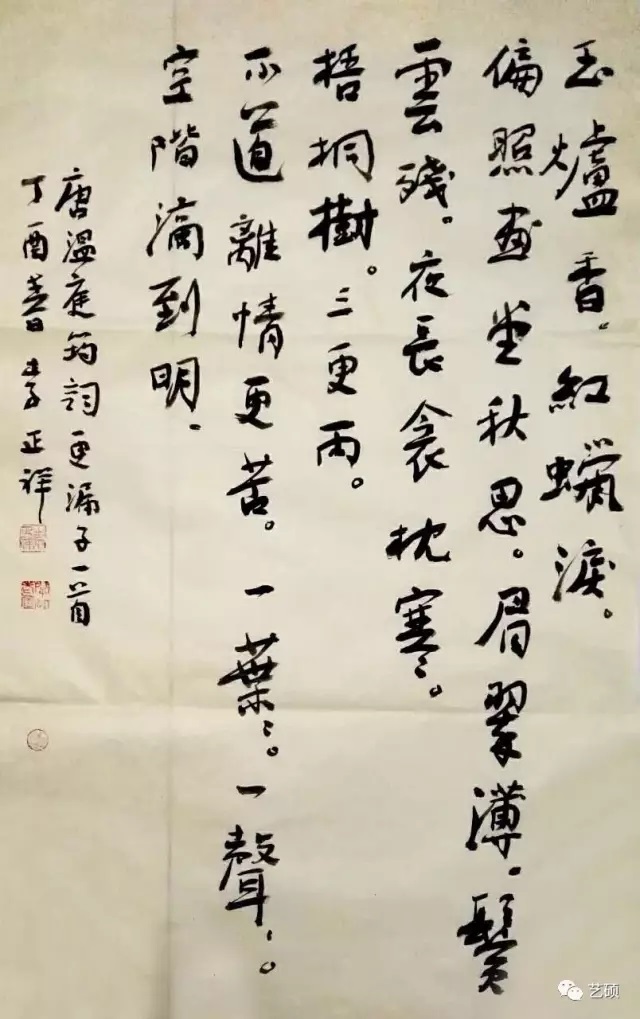 玉爐香。紅蠟淚。
偏照畫堂秋思。眉翠薄。鬢
雲殘。夜長衾枕寒。
梧桐樹。三更雨。
不道離情更苦。一葉、。一聲、。
空階滴到明、
唐溫庭筠詞更漏子一首
丁酉春李正祥
艺硕